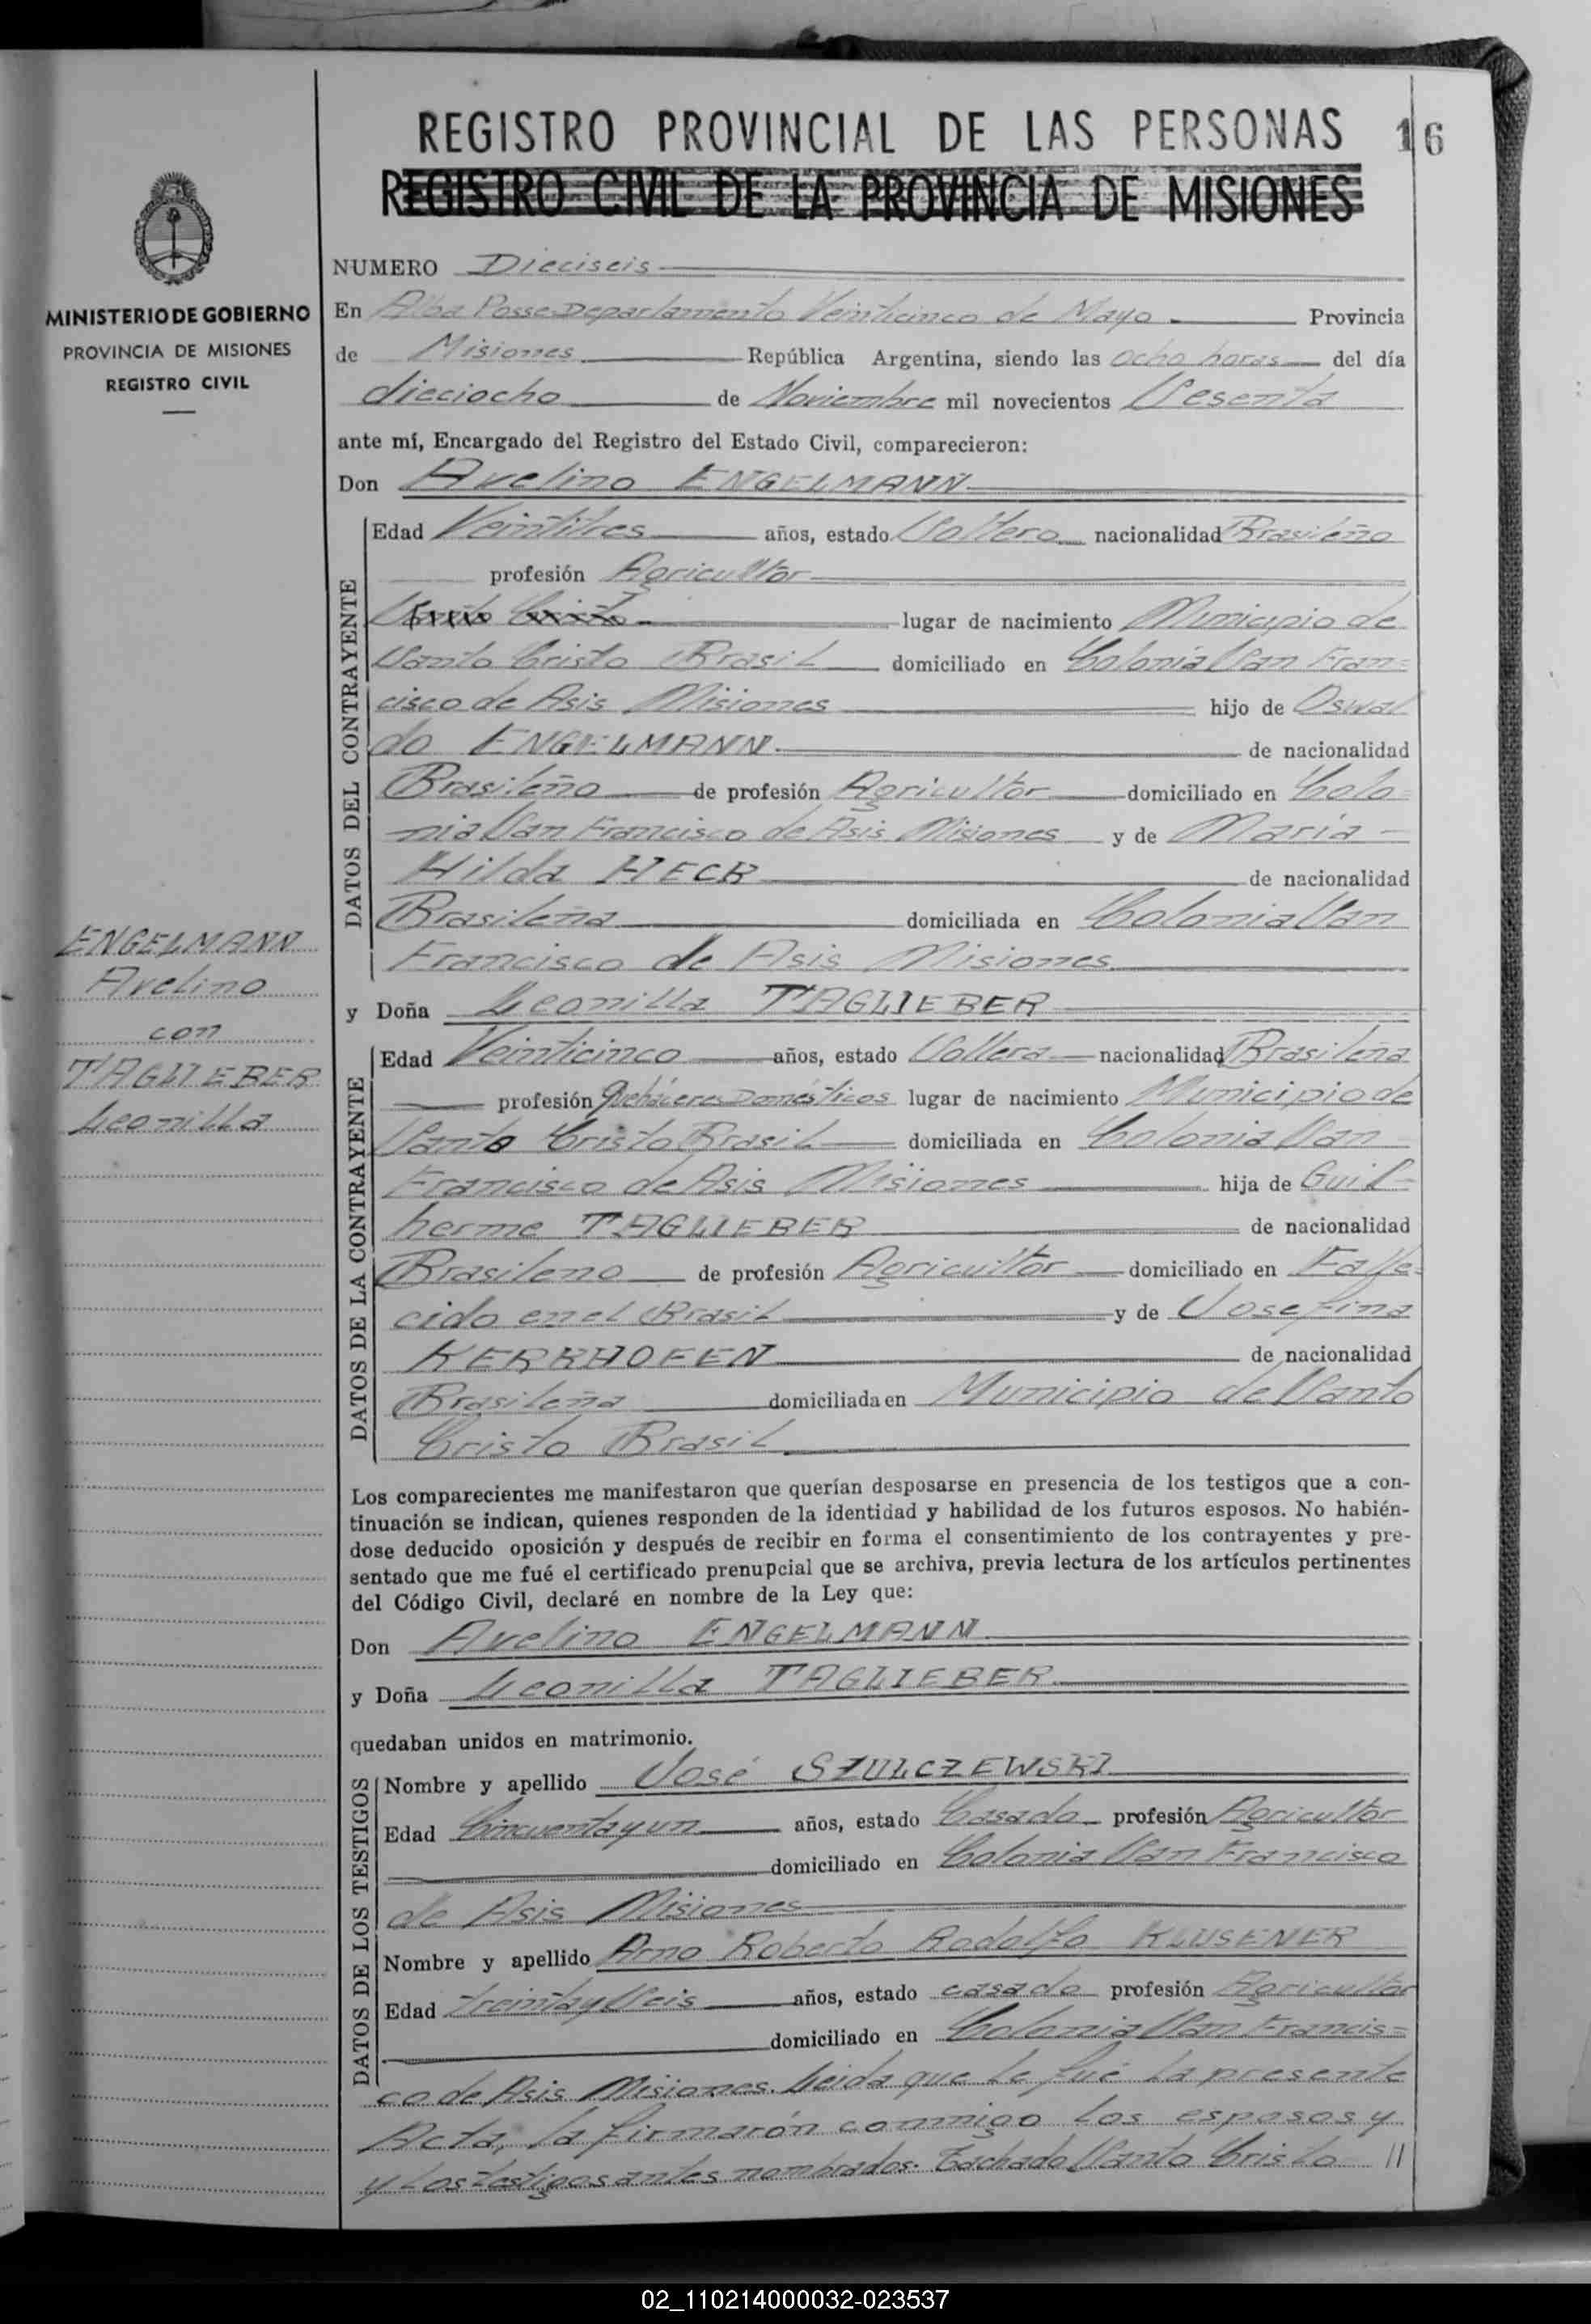 REGISTRO PROVINCIAL DE LAS PERSONAS 16
REGISTRO CIVIL DE LA PROVINCIA DE MISIONES
MINISTERIO DE GOBIERNO
PROVINCIA DE MISIONES
REGISTRO CIVIL
NUMERO Dieciseis
En Alba Posse Departamento Veinticinco de Mayo Provincia
de Misiones República Argentina, siendo las ocho horas del día
dieciocho de Noviembre mil novecientos Sesenta
ante mí, Encargado del Registro del Estado Civil, comparecieron:
Don Avelino ENGELMANN
DATOS DEL CONTRAYENTE
Edad Veintitres años, estado Soltero nacionalidad Brasileño
profesión Agricultor
Santo Cristo lugar de nacimiento Municipio de
Santo Cristo Brasil domiciliado en Colonia San Fran=
cisco de Asis Misiones hijo de Oswal
do ENGELMANN de nacionalidad
Brasileño de profesión Agricultor domiciliado en Colo
nia San Francisco de Asis Misiones y de María
Hilda HECK de nacionalidad
Brasileña domiciliada en Colonia San
Francisco de Asis Misiones
y Doña Leonilla TAGLIEBER
DATOS DE LA CONTRAYENTE
Edad Veinticinco años, estado Soltera nacionalidad Brasileña
profesión Quehaceres Domésticos lugar de nacimiento Municipio de
Santo Cristo Brasil domiciliada en Colonia San
Francisco de Asis Misiones hija de Guil-
herme TAGLIEBER de nacionalidad
Brasileno de profesión Agricultor domiciliado en Falle=
cido en el Brasil y de Josefina
KERKHOFEN de nacionalidad
Brasileña domiciliada en Municipio de Santo
Cristo Brasil
ENGELMANN
Avelino
con
TAGLIEBER
Leonilla
Los comparecientes me manifestaron que querían desposarse en presencia de los testigos que a con-
tinuación se indican, quienes responden de la identidad y habilidad de los futuros esposos. No habién-
dose deducido oposición y después de recibir en forma el consentimiento de los contrayentes y pre-
sentado que me fué el certificado prenupcial que se archiva, previa lectura de los artículos pertinentes
del Código Civil, declaré en nombre de la Ley que:
Don Avelino ENGELMANN
y Doña Leonilla TAGLIEBER
quedaban unidos en matrimonio.
DATOS DE LOS TESTIGOS
Nombre y apellido José SZULCZEWSKI
Edad Cincuenta y un años, estado Casado profesión Agricultor
domiciliado en Colonia San Francisco
de Asis Misiones
Nombre y apellido Arno Roberto Rodolfo KLUSENER
Edad treinta y Seis años, estado casado profesión Agricultor
domiciliado en Colonia San Francis=
co de Asis Misiones. Leida que le fué la presente
Acta, la firmarón conmigo los esposos y
y los testigos antes nombrados. Tachado Santo Cristo //
02_110214000032-023537